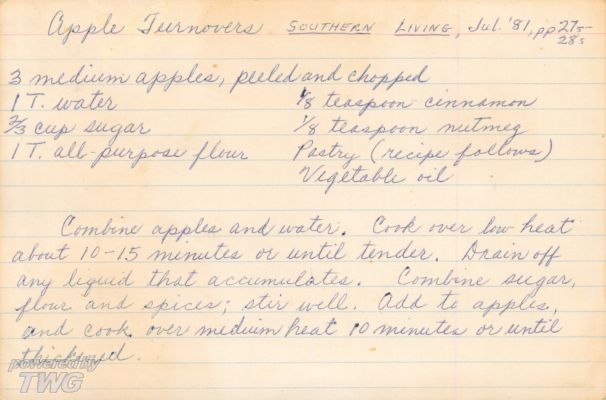 Apple Turnovers SOUTHERN LIVING, Jul. '81, pp 27s-28s
3 medium apples, peeled and chopped
1 T. water 1/8 teaspoon cinnamon
2/3 cup sugar 1/8 teaspoon nutmeg
1 T. all-purpose flour Pastry (recipe follows)
Vegetable oil
Combine apples and water. Cook over low heat
about 10-15 minutes or until tender. Drain off
any liquid that accumulates. Combine sugar,
flour and spices; stir well. Add to apples,
and cook over medium heat 10 minutes or until
thickened.
powered by
TWG